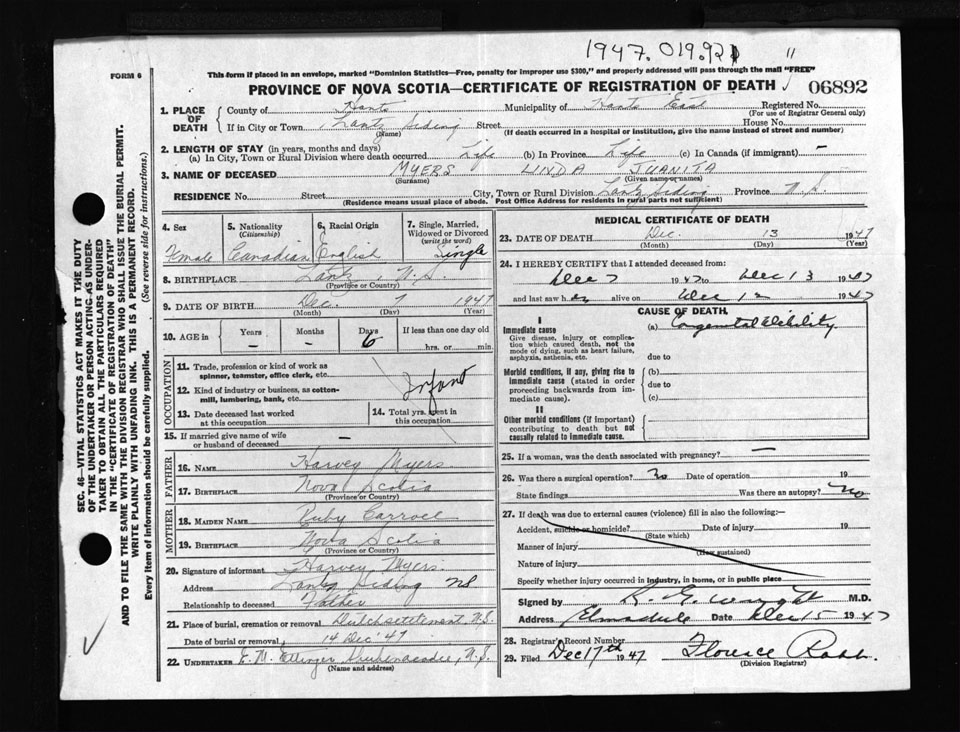 1947. 01992 "
FORM 6
This form if placed in an envelope, marked "Dominion Statistics—Free, penalty for improper use $300," and properly addressed will pass through the mail "FREE"
PROVINCE OF NOVA SCOTIA—CERTIFICATE OF REGISTRATION OF DEATH 06892
1. PLACE OF DEATH
County of Hants Municipality of Hants East Registered No.
(For use of Registrar General only)
If in City or Town Lantz Siding Street House No.
(Name) (If death occurred in a hospital or institution, give the name instead of street and number)
2. LENGTH OF STAY (in years, months and days)
(a) In City, Town or Rural Division where death occurred Life (b) In Province Life (c) In Canada (if immigrant) —
3. NAME OF DECEASED MYERS LINDA JUANITA
(Surname) (Given name or names)
RESIDENCE No. Street City, Town or Rural Division Lantz Siding Province N.S.
(Residence means usual place of abode. Post Office Address for residents in rural parts not sufficient)
4. Sex
Female
5. Nationality
(Citizenship)
Canadian
6. Racial Origin
English
7. Single, Married, Widowed or Divorced
(write the word)
Single
8. BIRTHPLACE Lantz, N.S.
(Province or Country)
9. DATE OF BIRTH Dec. 7 1947
(Month) (Day) (Year)
10. AGE in Years Months Days If less than one day old
— — 6 hrs. or min.
OCCUPATION
11. Trade, profession or kind of work as
spinner, teamster, office clerk, etc.
12. Kind of industry or business, as cotton-
mill, lumbering, bank, etc.
Infant
13. Date deceased last worked
at this occupation
14. Total yrs. spent in
this occupation
15. If married give name of wife
or husband of deceased —
FATHER
16. NAME Harvey Myers
17. BIRTHPLACE Nova Scotia
(Province or Country)
MOTHER
18. MAIDEN NAME Ruby Carroll
19. BIRTHPLACE Nova Scotia
(Province or Country)
20. Signature of informant Harvey Myers
Address Lantz Siding NS
Relationship to deceased Father
21. Place of burial, cremation or removal Dutch Settlement, N.S.
Date of burial or removal 14 Dec '47
22. UNDERTAKER E. M. Ettinger Shubenacadie, N.S.
(Name and address)
MEDICAL CERTIFICATE OF DEATH
23. DATE OF DEATH Dec. 13 1947
(Month) (Day) (Year)
24. I HEREBY CERTIFY that I attended deceased from:
Dec 7 1947 to Dec 13 1947
and last saw h alive on Dec 12 1947
CAUSE OF DEATH
I
Immediate cause
Give disease, injury or complica-
tion which caused death, not the
mode of dying, such as heart failure,
asphyxia, asthenia, etc.
(a) Congenital Debility
due to
Morbid conditions, if any, giving rise to
immediate cause (stated in order
proceeding backwards from im-
mediate cause).
(b)
due to
(c)
II
Other morbid conditions (if important)
contributing to death but not
causally related to immediate cause.
25. If a woman, was the death associated with pregnancy? —
26. Was there a surgical operation? No Date of operation 19
State findings Was there an autopsy? No
27. If death was due to external causes (violence) fill in also the following:—
Accident, suicide or homicide? Date of injury 19
(State which)
Manner of injury
(How sustained)
Nature of injury
Specify whether injury occurred in industry, in home, or in public place
Signed by K. G. Wright M.D.
Address Elmsdale Date Dec 15 1947
28. Registrar's Record Number
29. Filed Dec 17th 1947 Florence Robb.
(Division Registrar)
SEC. 46—VITAL STATISTICS ACT MAKES IT THE DUTY
OF THE UNDERTAKER OR PERSON ACTING AS UNDER-
TAKER TO OBTAIN ALL THE PARTICULARS REQUIRED
IN THE "CERTIFICATE OF REGISTRATION OF DEATH"
AND TO FILE THE SAME WITH THE DIVISION REGISTRAR WHO SHALL ISSUE THE BURIAL PERMIT.
WRITE PLAINLY WITH UNFADING INK. THIS IS A PERMANENT RECORD.
Every item of information should be carefully supplied. (See reverse side for instructions.)